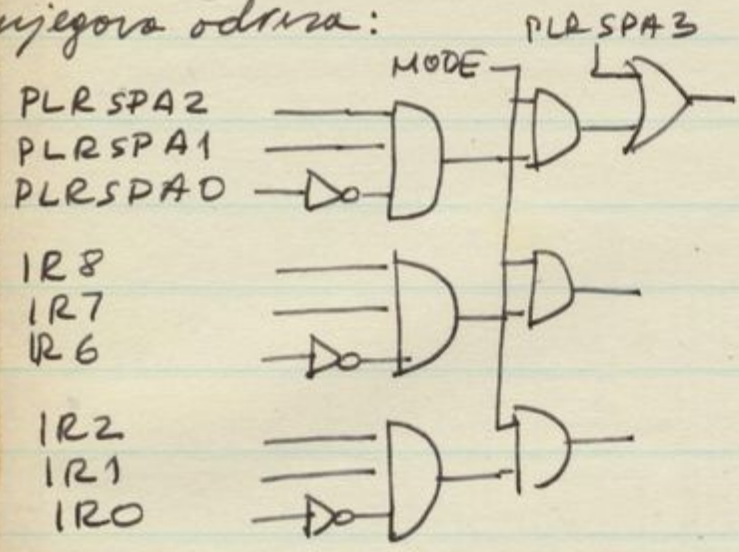 njegova odreza:
PLRSPA3
MODE
PLRSPA2
PLRSPA1
PLRSPA0
IR8
IR7
IR6
IR2
IR1
IR0